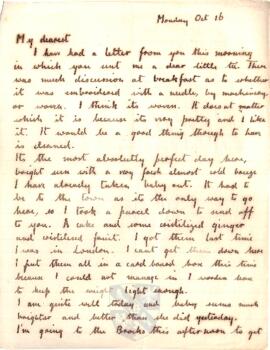 Monday Oct 16
My dearest
I have had a letter from you this morning
in which you sent me a dear little tie. There
was much discussion at breakfast as to whether
it was embroidered with a needle, by machinery
or woven. I think its woven. It does not matter
which it is because its very pretty and I like
it. It would be a good thing though to have
is cleaned.
Its the most absolutely perfect day here,
bright sun with a very fresh almost cold breeze
I have already taken baby out. It had to
be to the town as it the only way to go
here, so I took a parcel down to send off
to you. A cake and some cristilized ginger
and cristilised fruit. I got them last time
I was in London. I cant get them down here
I put them all in a card board box this time
because I could not manage in 1 wooden box
to keep the weight light enough.
I am quite well today and baby seems much
brighter and better than she did yesterday.
I'm going to the Brooks this afternoon to get